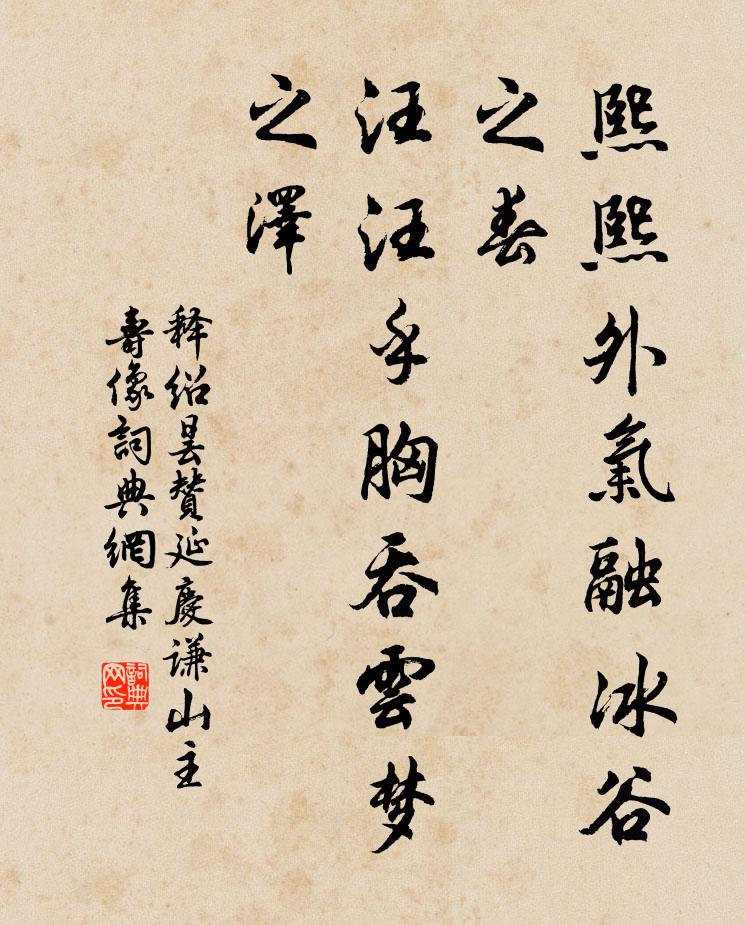 熙熙外氣融冰谷
之春
汪汪乎胸吞雲梦
之澤
释绍昙赞延慶谦山主
壽像詞典網集
詞典网印